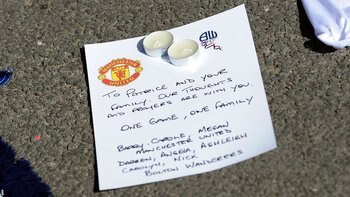 MANCHESTER
UNITED
BW
TO PATRICE AND YOUR
FAMILY. OUR THOUGHTS
AND PRAYERS ARE WITH YOU.
ONE GAME, ONE FAMILY
BARRY, CAROLE, MEGAN
MANCHESTER UNITED
DARREN, ANGELA, ASHLEIGH
CAROLYN, NICK
BOLTON WANDERERS